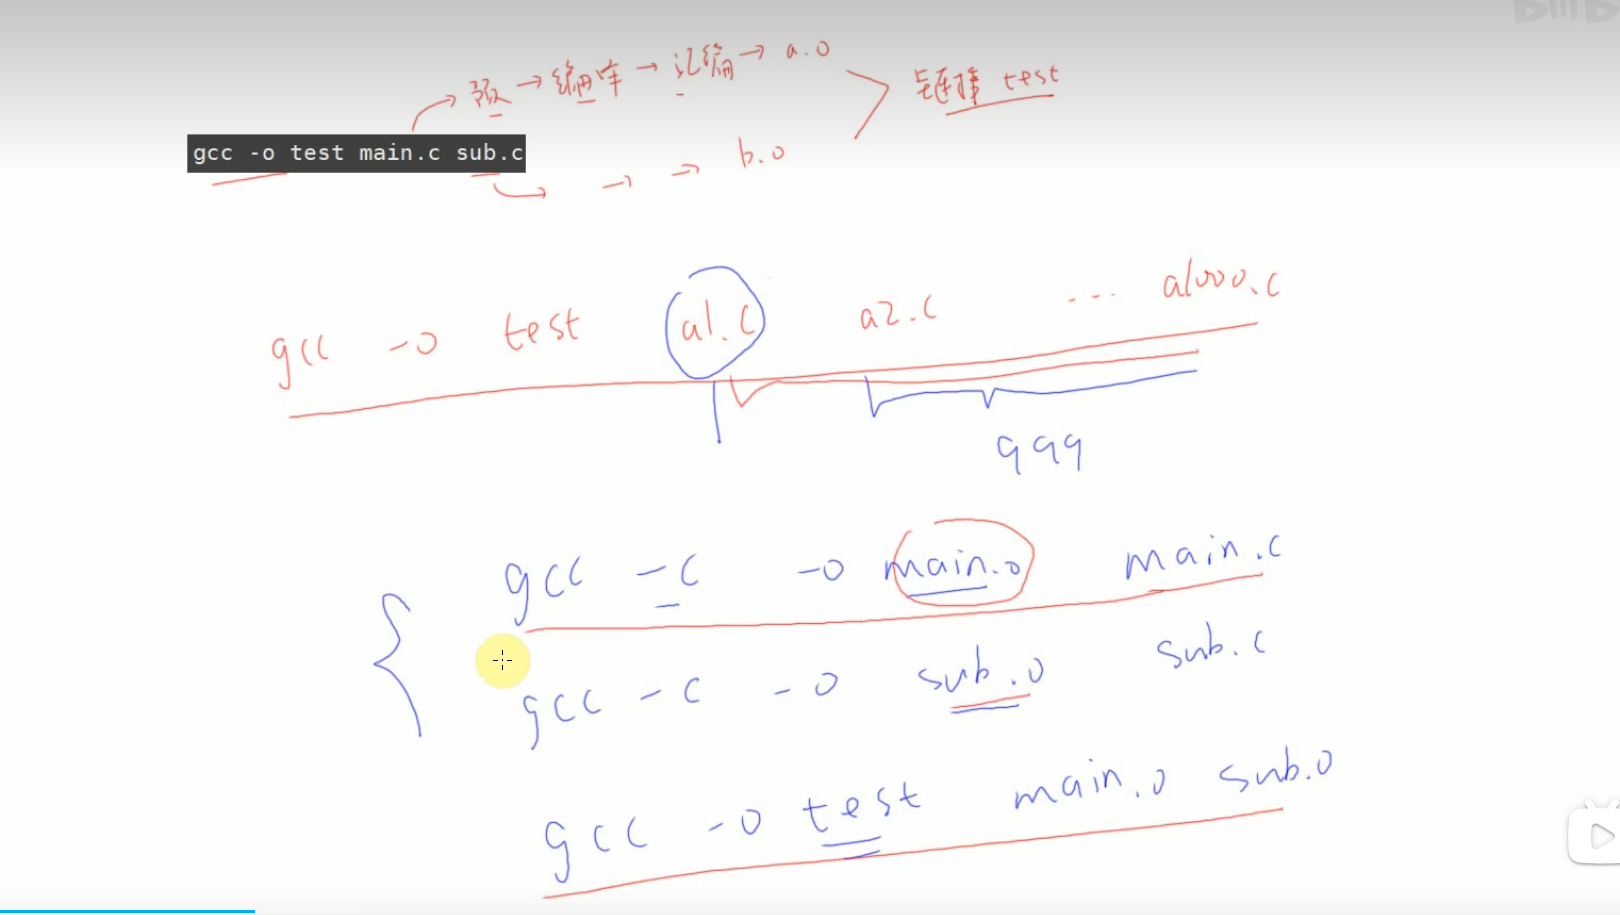 预 → 编译 → 汇编 → a.o
链接 test
gcc -o test main.c sub.c
→ → → b.o
gcc -o test a1.c a2.c ... a1000.c
999
gcc -c -o main.o main.c
gcc -c -o sub.o sub.c
gcc -o test main.o sub.o